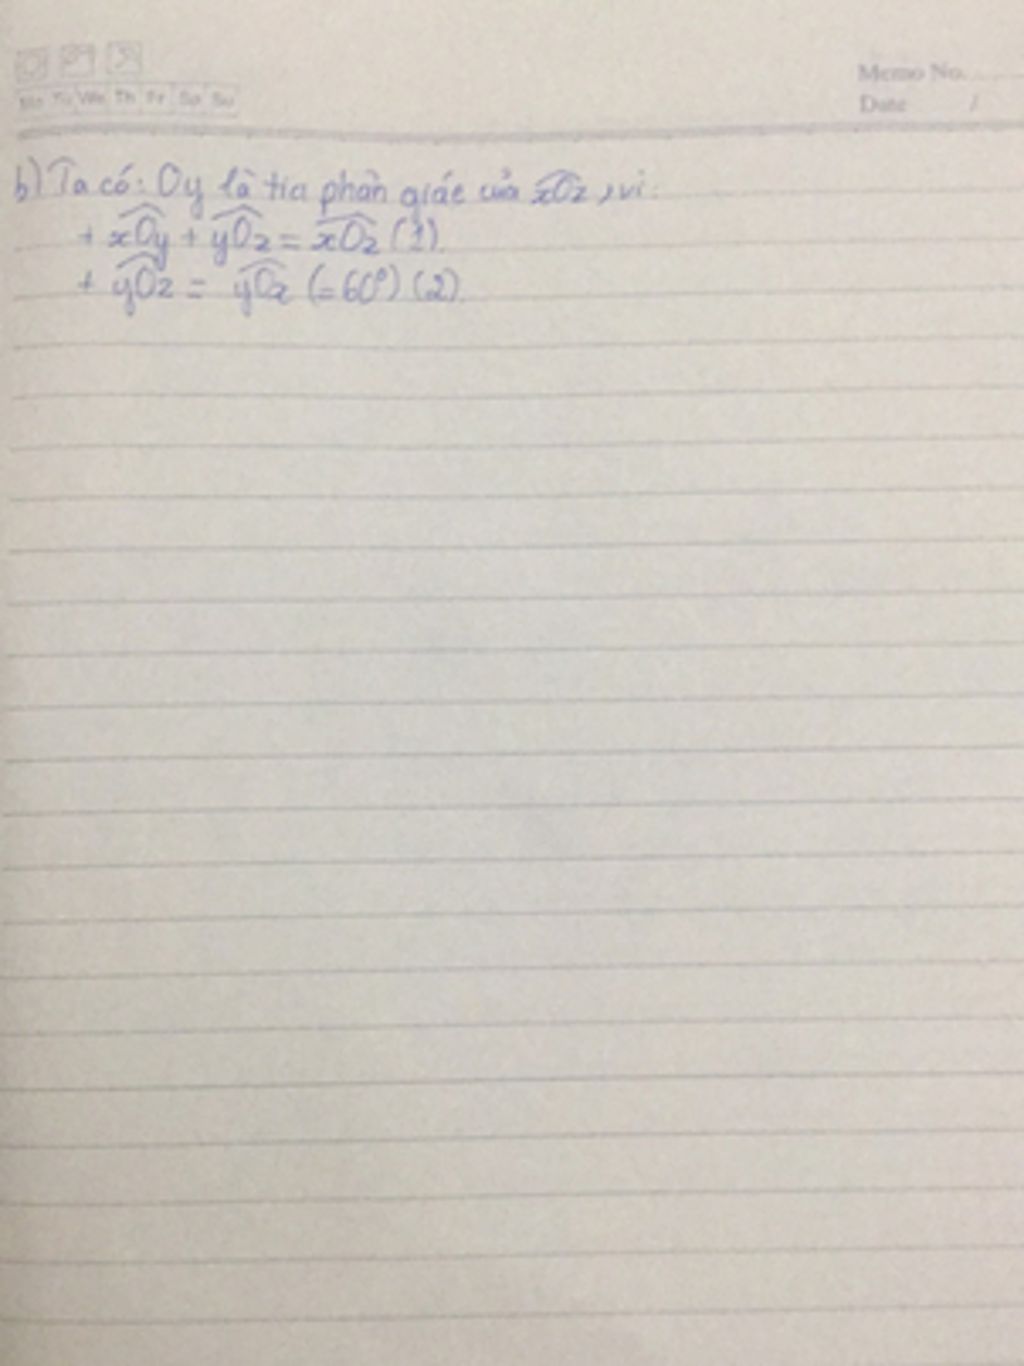 Mo Tu We Th Fr Sa Su
Memo No.
Date /
b) Ta có: Oy là tia phân giác của xOz, vì:
+ xOy + yOz = xOz (1)
+ yOz = yOz (=60°) (2)